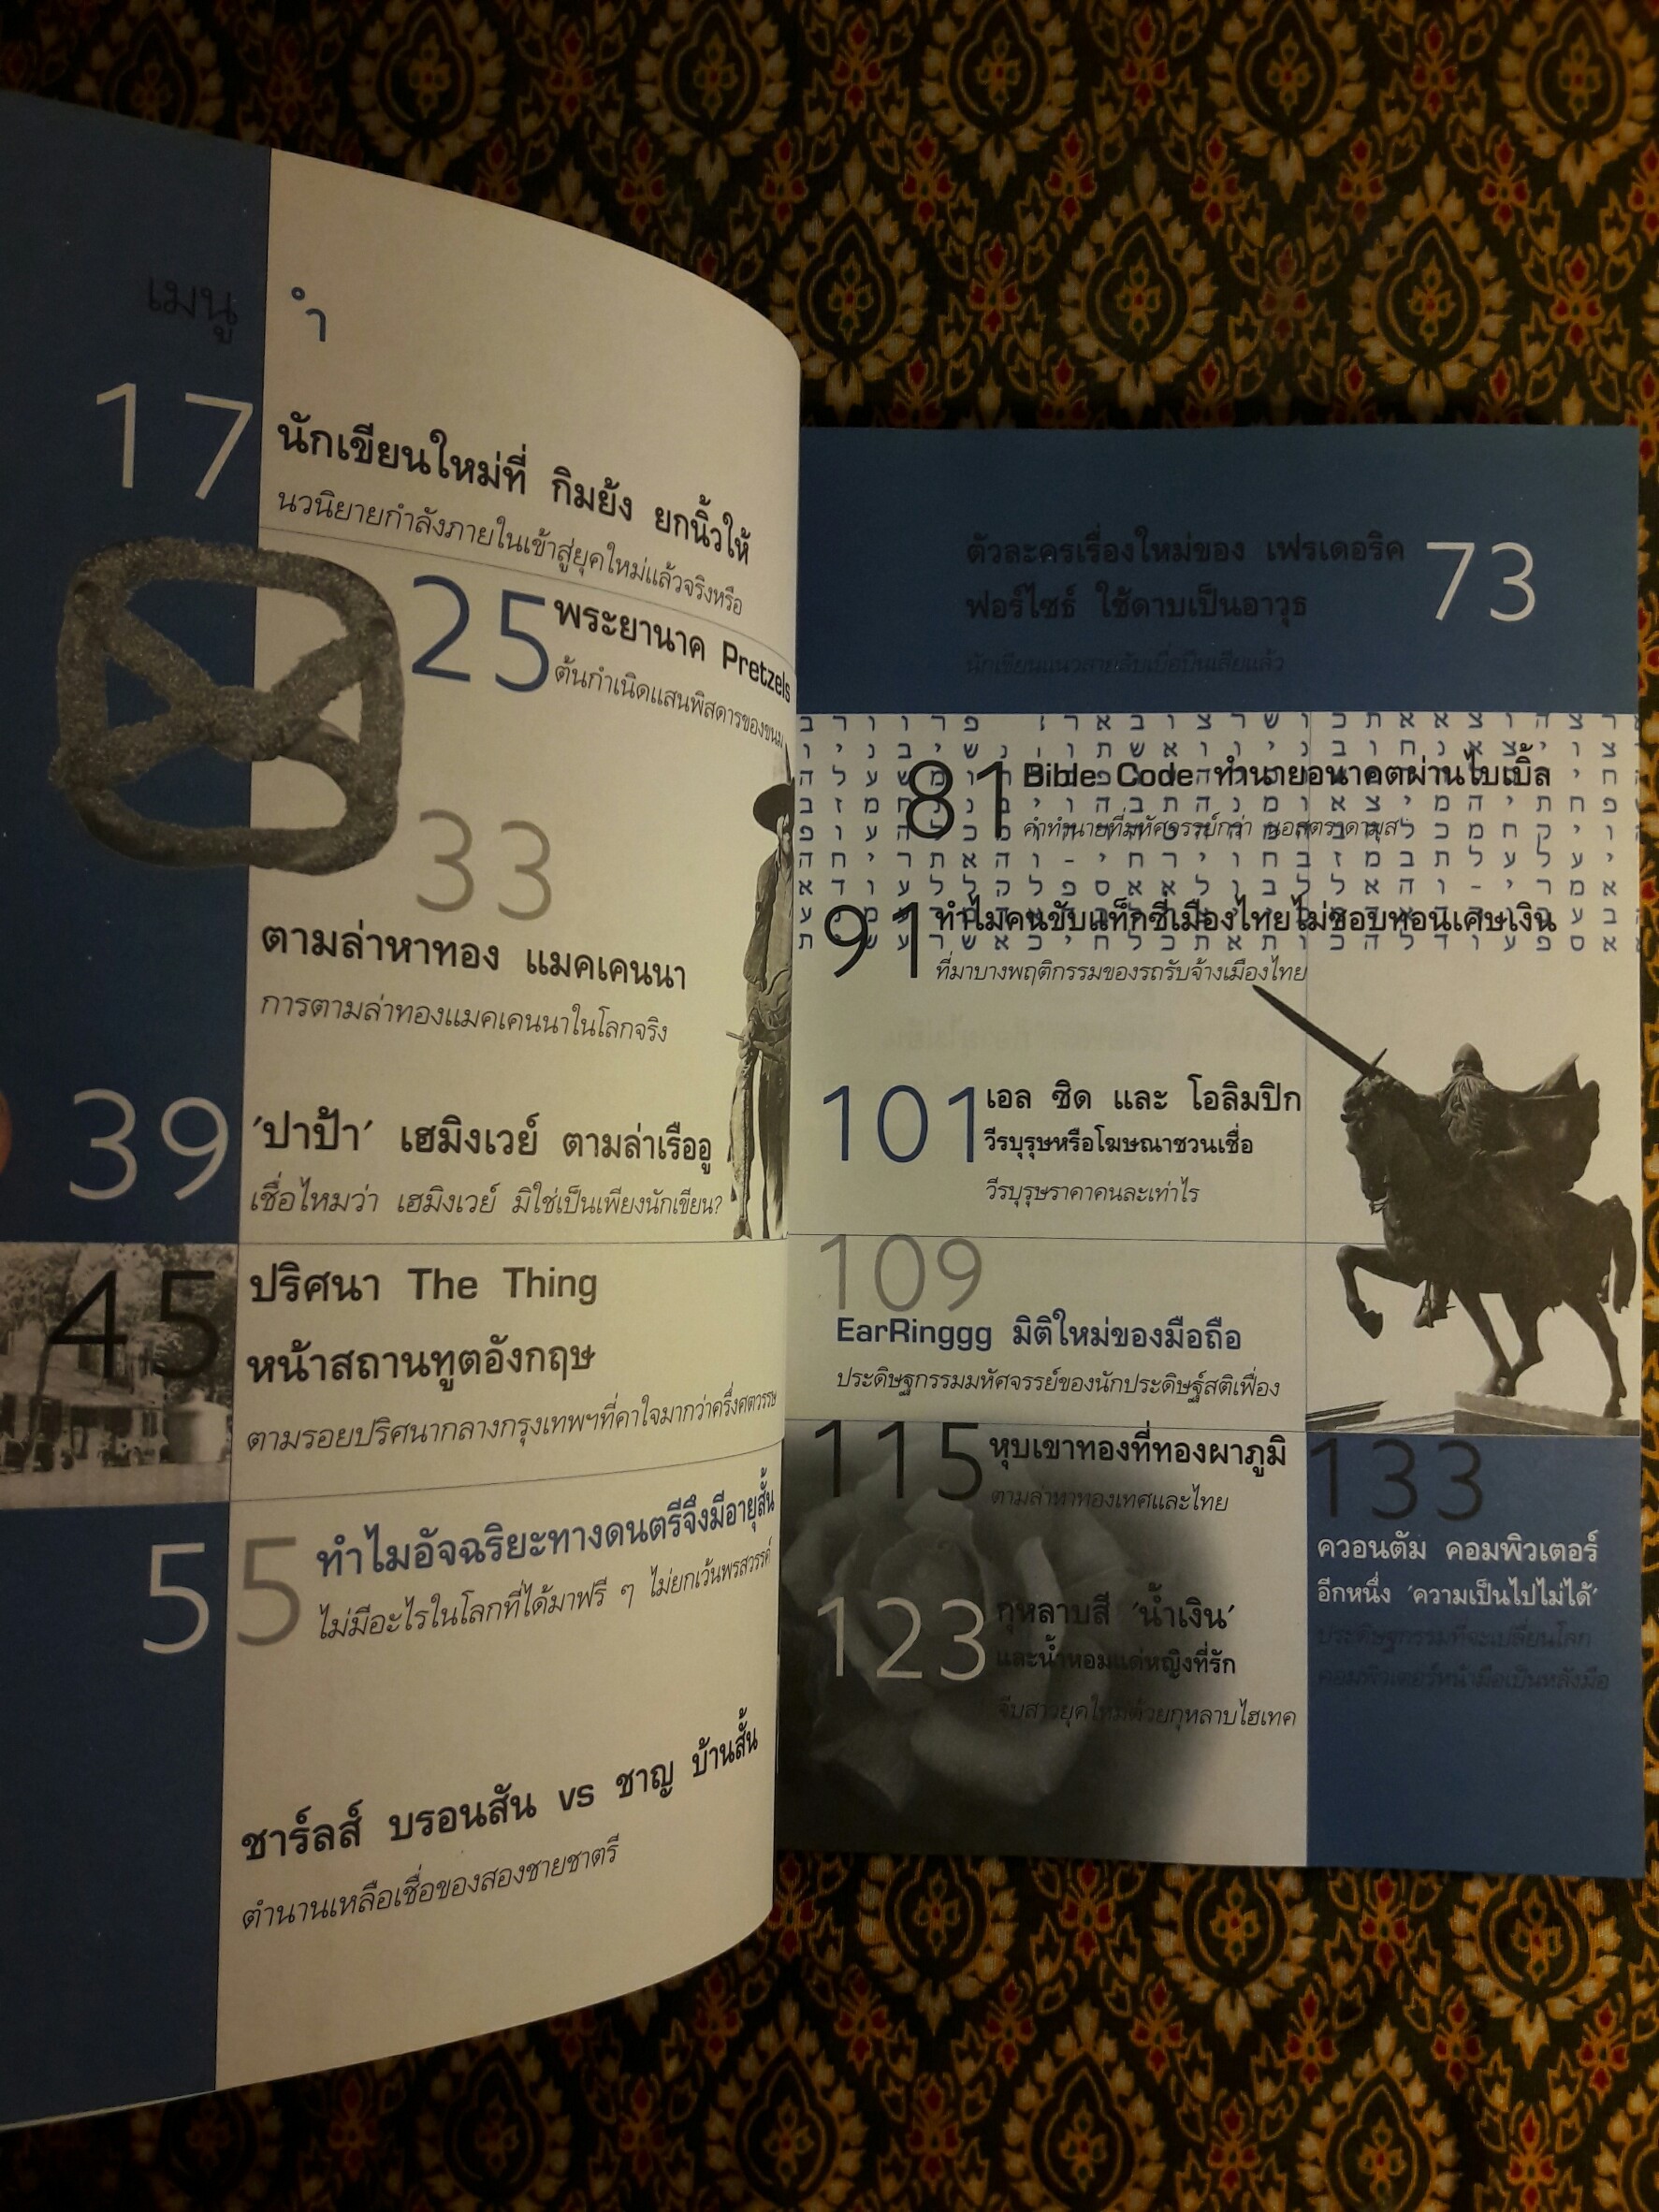 เมนู ำ
17
นักเขียนใหม่ที่ กิมย้ง ยกนิ้วให้
นวนิยายกำลังภายในเข้าสู่ยุคใหม่แล้วจริงหรือ
25
พระยานาค Pretzels
ต้นกำเนิดแสนพิสดารของขนม
33
ตามล่าหาทอง แมคเคนนา
การตามล่าทองแมคเคนนาในโลกจริง
39
'ปาป้า' เฮมิงเวย์ ตามล่าเรืออู
เชื่อไหมว่า เฮมิงเวย์ มิใช่เป็นเพียงนักเขียน?
45
ปริศนา The Thing
หน้าสถานทูตอังกฤษ
ตามรอยปริศนากลางกรุงเทพฯที่คาใจมากว่าครึ่งศตวรรษ
55
ทำไมอัจฉริยะทางดนตรีจึงมีอายุสั้น
ไม่มีอะไรในโลกที่ได้มาฟรี ๆ ไม่ยกเว้นพรสวรรค์
ชาร์ลส์ บรอนสัน vs ชาญ บ้านสั้น
ตำนานเหลือเชื่อของสองชายชาตรี
ตัวละครเรื่องใหม่ของ เฟรเดอริค
ฟอร์ไซธ์ ใช้ดาบเป็นอาวุธ
73
นักเขียนแนวสายลับเบื่อปืนเสียแล้ว
81
Bible Code ทำนายอนาคตผ่านไบเบิ้ล
คำทำนายที่มหัศจรรย์กว่า นอสตราดามุส
91
ทำไมคนขับแท็กซี่เมืองไทยไม่ชอบทอนเศษเงิน
ที่มาบางพฤติกรรมของรถรับจ้างเมืองไทย
101
เอล ซิด และ โอลิมปิก
วีรบุรุษหรือโฆษณาชวนเชื่อ
วีรบุรุษราคาคนละเท่าไร
109
EarRinggg มิติใหม่ของมือถือ
ประดิษฐกรรมมหัศจรรย์ของนักประดิษฐ์สติเฟื่อง
115
หุบเขาทองที่ทองผาภูมิ
ตามล่าหาทองเทศและไทย
123
กุหลาบสี 'น้ำเงิน'
และน้ำหอมแด่หญิงที่รัก
จีบสาวยุคใหม่ด้วยกุหลาบไฮเทค
133
ควอนตัม คอมพิวเตอร์
อีกหนึ่ง 'ความเป็นไปไม่ได้'
ประดิษฐกรรมที่จะเปลี่ยนโลก
คอมพิวเตอร์หน้ามือเป็นหลังมือ